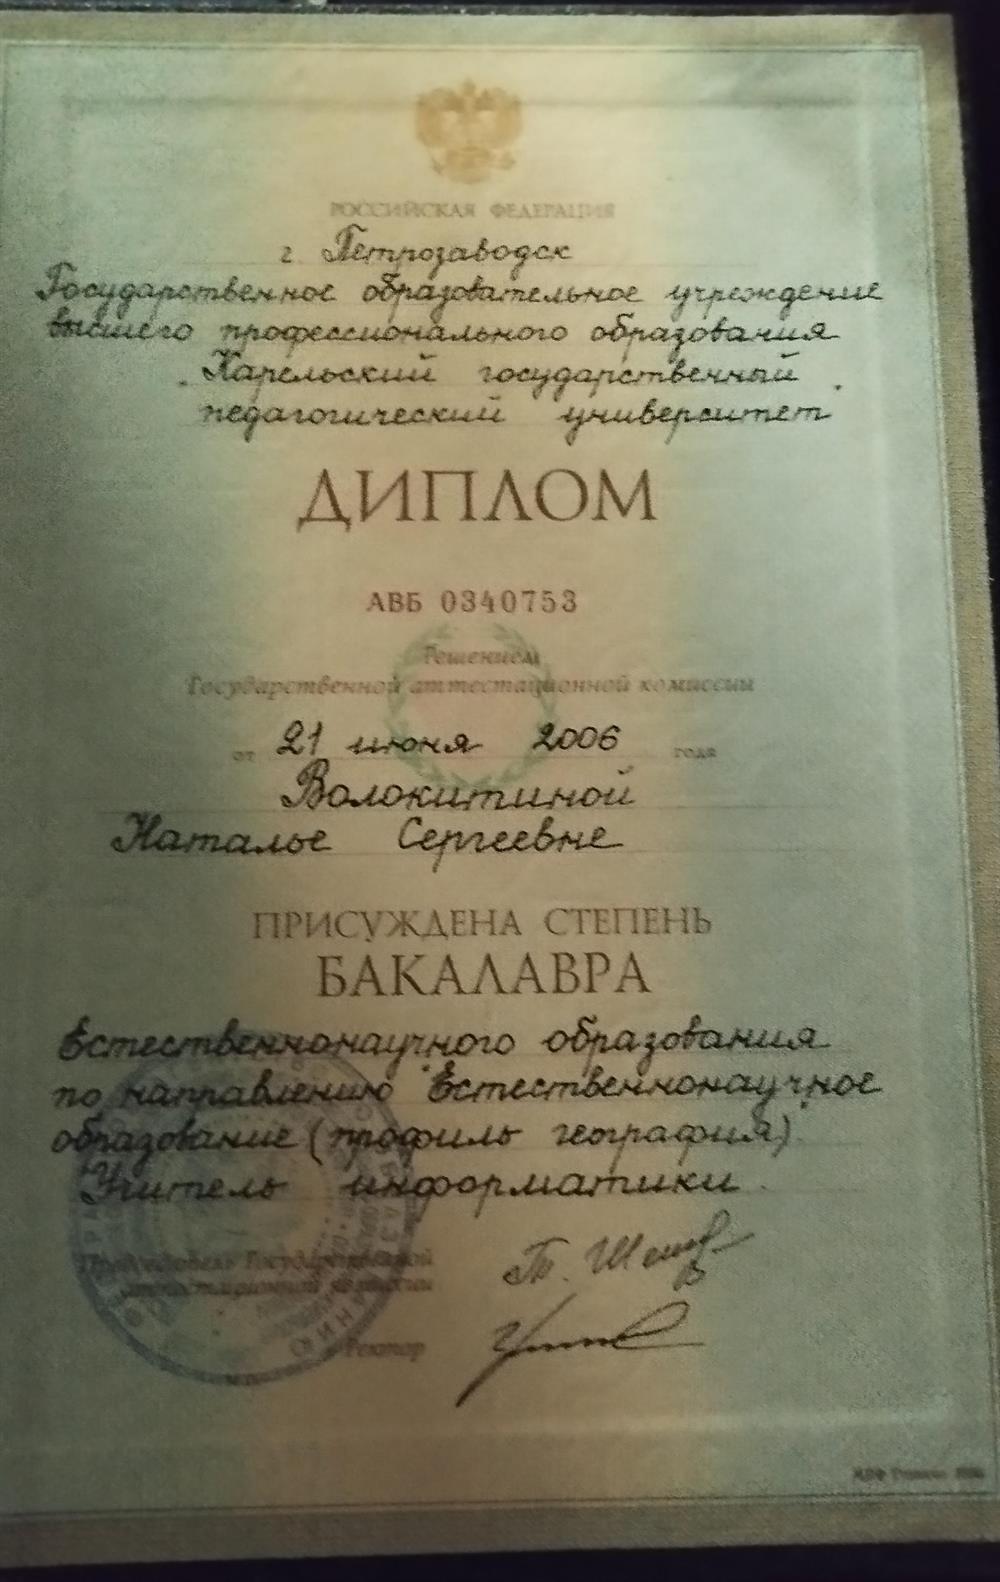 РОССИЙСКАЯ ФЕДЕРАЦИЯ
г Петрозаводск
Государственное образовательное учреждение
высшего профессионального образования
"Карельский государственный
педагогический университет"
ДИПЛОМ
АВБ 0340753
Решением
Государственной аттестационной комиссии
от 21 июня 2006 года
Волокитиной
Наталье Сергеевне
ПРИСУЖДЕНА СТЕПЕНЬ
БАКАЛАВРА
Естественнонаучного образования
по направлению "Естественнонаучное
образование (профиль география)"
Учитель информатики.
Председатель Государственной
аттестационной комиссии
Ректор